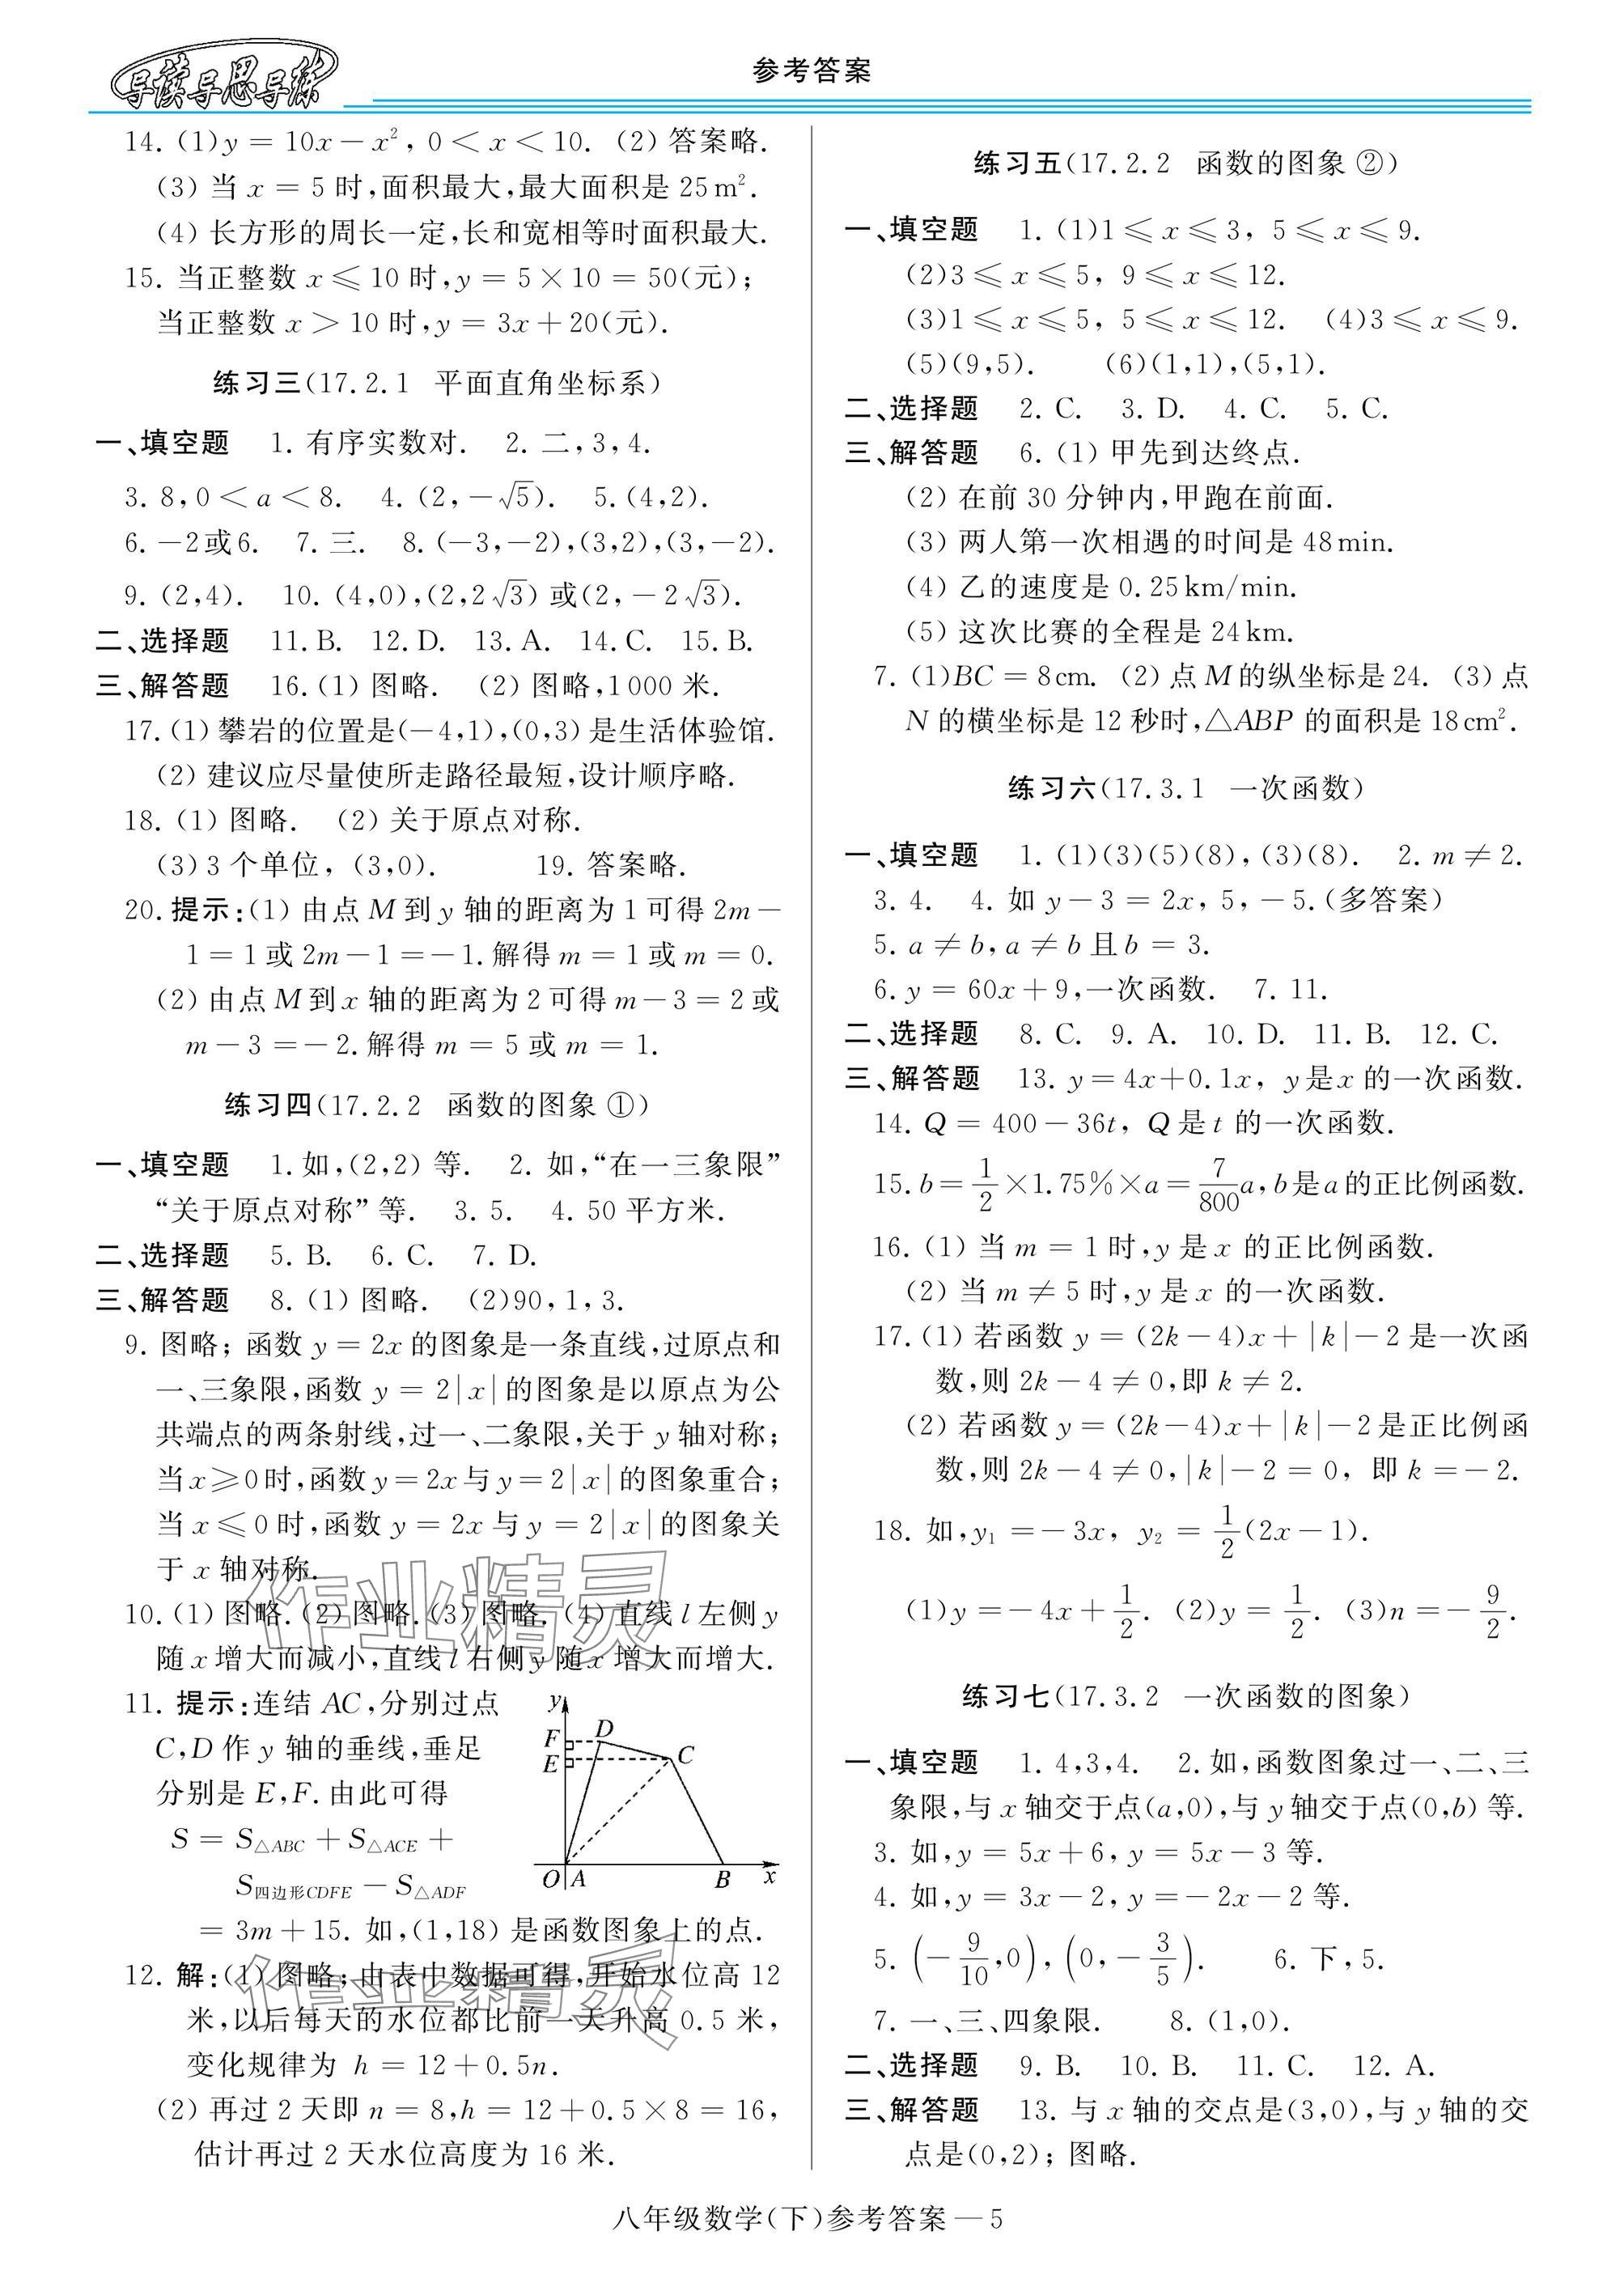 导读导思导练
参考答案
14. (1)y = 10x − x², 0 < x < 10. (2) 答案略.
(3) 当 x = 5 时,面积最大,最大面积是 25 m².
(4) 长方形的周长一定,长和宽相等时面积最大.
15. 当正整数 x ⩽ 10 时,y = 5 × 10 = 50(元);
当正整数 x > 10 时,y = 3x + 20(元).
练习三(17.2.1 平面直角坐标系)
一、填空题 1. 有序实数对. 2. 二,3,4.
3. 8,0 < a < 8. 4. (2,−√5). 5. (4,2).
6. −2或6. 7. 三. 8. (−3,−2),(3,2),(3,−2).
9. (2,4). 10. (4,0),(2,2√3) 或(2,−2√3).
二、选择题 11. B. 12. D. 13. A. 14. C. 15. B.
三、解答题 16. (1) 图略. (2) 图略,1000 米.
17. (1) 攀岩的位置是(−4,1),(0,3) 是生活体验馆.
(2) 建议应尽量使所走路径最短,设计顺序略.
18. (1) 图略. (2) 关于原点对称.
(3) 3 个单位, (3,0). 19. 答案略.
20. 提示:(1) 由点 M 到 y 轴的距离为 1 可得 2m −
1 = 1 或 2m − 1 = − 1. 解得 m = 1 或 m = 0.
(2) 由点 M 到 x 轴的距离为 2 可得 m − 3 = 2 或
m − 3 = − 2. 解得 m = 5 或 m = 1.
练习四(17.2.2 函数的图象 ①)
一、填空题 1. 如,(2,2) 等. 2. 如,“在一三象限”
“关于原点对称” 等. 3. 5. 4. 50 平方米.
二、选择题 5. B. 6. C. 7. D.
三、解答题 8. (1) 图略. (2)90, 1, 3.
9. 图略; 函数 y = 2x 的图象是一条直线,过原点和
一、三象限,函数 y = 2|x| 的图象是以原点为公
共端点的两条射线,过一、二象限,关于 y 轴对称;
当 x ⩾ 0 时,函数 y = 2x 与 y = 2|x| 的图象重合;
当 x ⩽ 0 时,函数 y = 2x 与 y = 2|x| 的图象关
于 x 轴对称.
10. (1) 图略. (2) 图略. (3) 图略. (4) 直线 l 左侧 y
随 x 增大而减小,直线 l 右侧 y 随 x 增大而增大.
11. 提示:连结 AC,分别过点
C,D 作 y 轴的垂线,垂足
分别是 E,F. 由此可得
S = S△ABC + S△ACE +
S四边形CDFE − S△ADF
y
F
D
E
C
O
A
B
x
= 3m + 15. 如,(1,18) 是函数图象上的点.
12. 解:(1) 图略; 由表中数据可得,开始水位高 12
米,以后每天的水位都比前一天升高 0.5 米,
变化规律为 h = 12 + 0.5n.
(2) 再过 2 天即 n = 8,h = 12 + 0.5 × 8 = 16,
估计再过 2 天水位高度为 16 米.
作业精灵
作业精灵
练习五(17.2.2 函数的图象 ②)
一、填空题 1. (1)1 ⩽ x ⩽ 3, 5 ⩽ x ⩽ 9.
(2)3 ⩽ x ⩽ 5, 9 ⩽ x ⩽ 12.
(3)1 ⩽ x ⩽ 5, 5 ⩽ x ⩽ 12. (4)3 ⩽ x ⩽ 9.
(5)(9,5). (6)(1,1),(5,1).
二、选择题 2. C. 3. D. 4. C. 5. C.
三、解答题 6. (1) 甲先到达终点.
(2) 在前 30 分钟内,甲跑在前面.
(3) 两人第一次相遇的时间是 48 min.
(4) 乙的速度是 0.25 km/min.
(5) 这次比赛的全程是 24 km.
7. (1)BC = 8 cm. (2) 点 M 的纵坐标是 24. (3) 点
N 的横坐标是 12 秒时,△ABP 的面积是 18 cm².
练习六(17.3.1 一次函数)
一、填空题 1. (1)(3)(5)(8), (3)(8). 2. m ≠ 2.
3. 4. 4. 如 y − 3 = 2x, 5, − 5. (多答案)
5. a ≠ b, a ≠ b 且 b = 3.
6. y = 60x + 9,一次函数. 7. 11.
二、选择题 8. C. 9. A. 10. D. 11. B. 12. C.
三、解答题 13. y = 4x + 0.1x, y 是 x 的一次函数.
14. Q = 400 − 36t, Q 是 t 的一次函数.
15. b = 1/2 × 1.75% × a = 7/800 a, b 是 a 的正比例函数.
16. (1) 当 m = 1 时,y 是 x 的正比例函数.
(2) 当 m ≠ 5 时,y 是 x 的一次函数.
17. (1) 若函数 y = (2k − 4)x + |k| − 2 是一次函
数,则 2k − 4 ≠ 0,即 k ≠ 2.
(2) 若函数 y = (2k − 4)x + |k| − 2 是正比例函
数,则 2k − 4 ≠ 0, |k| − 2 = 0, 即 k = − 2.
18. 如,y₁ = − 3x, y₂ = 1/2 (2x − 1).
(1)y = − 4x + 1/2. (2)y = 1/2. (3)n = − 9/2.
练习七(17.3.2 一次函数的图象)
一、填空题 1. 4,3,4. 2. 如,函数图象过一、二、三
象限,与 x 轴交于点(a,0),与 y 轴交于点(0,b) 等.
3. 如,y = 5x + 6, y = 5x − 3 等.
4. 如,y = 3x − 2, y = − 2x − 2 等.
5. (− 9/10, 0), (0, − 3/5). 6. 下, 5.
7. 一、三、四象限. 8. (1,0).
二、选择题 9. B. 10. B. 11. C. 12. A.
三、解答题 13. 与 x 轴的交点是(3,0),与 y 轴的交
点是(0,2); 图略.
八年级数学(下)参考答案 — 5